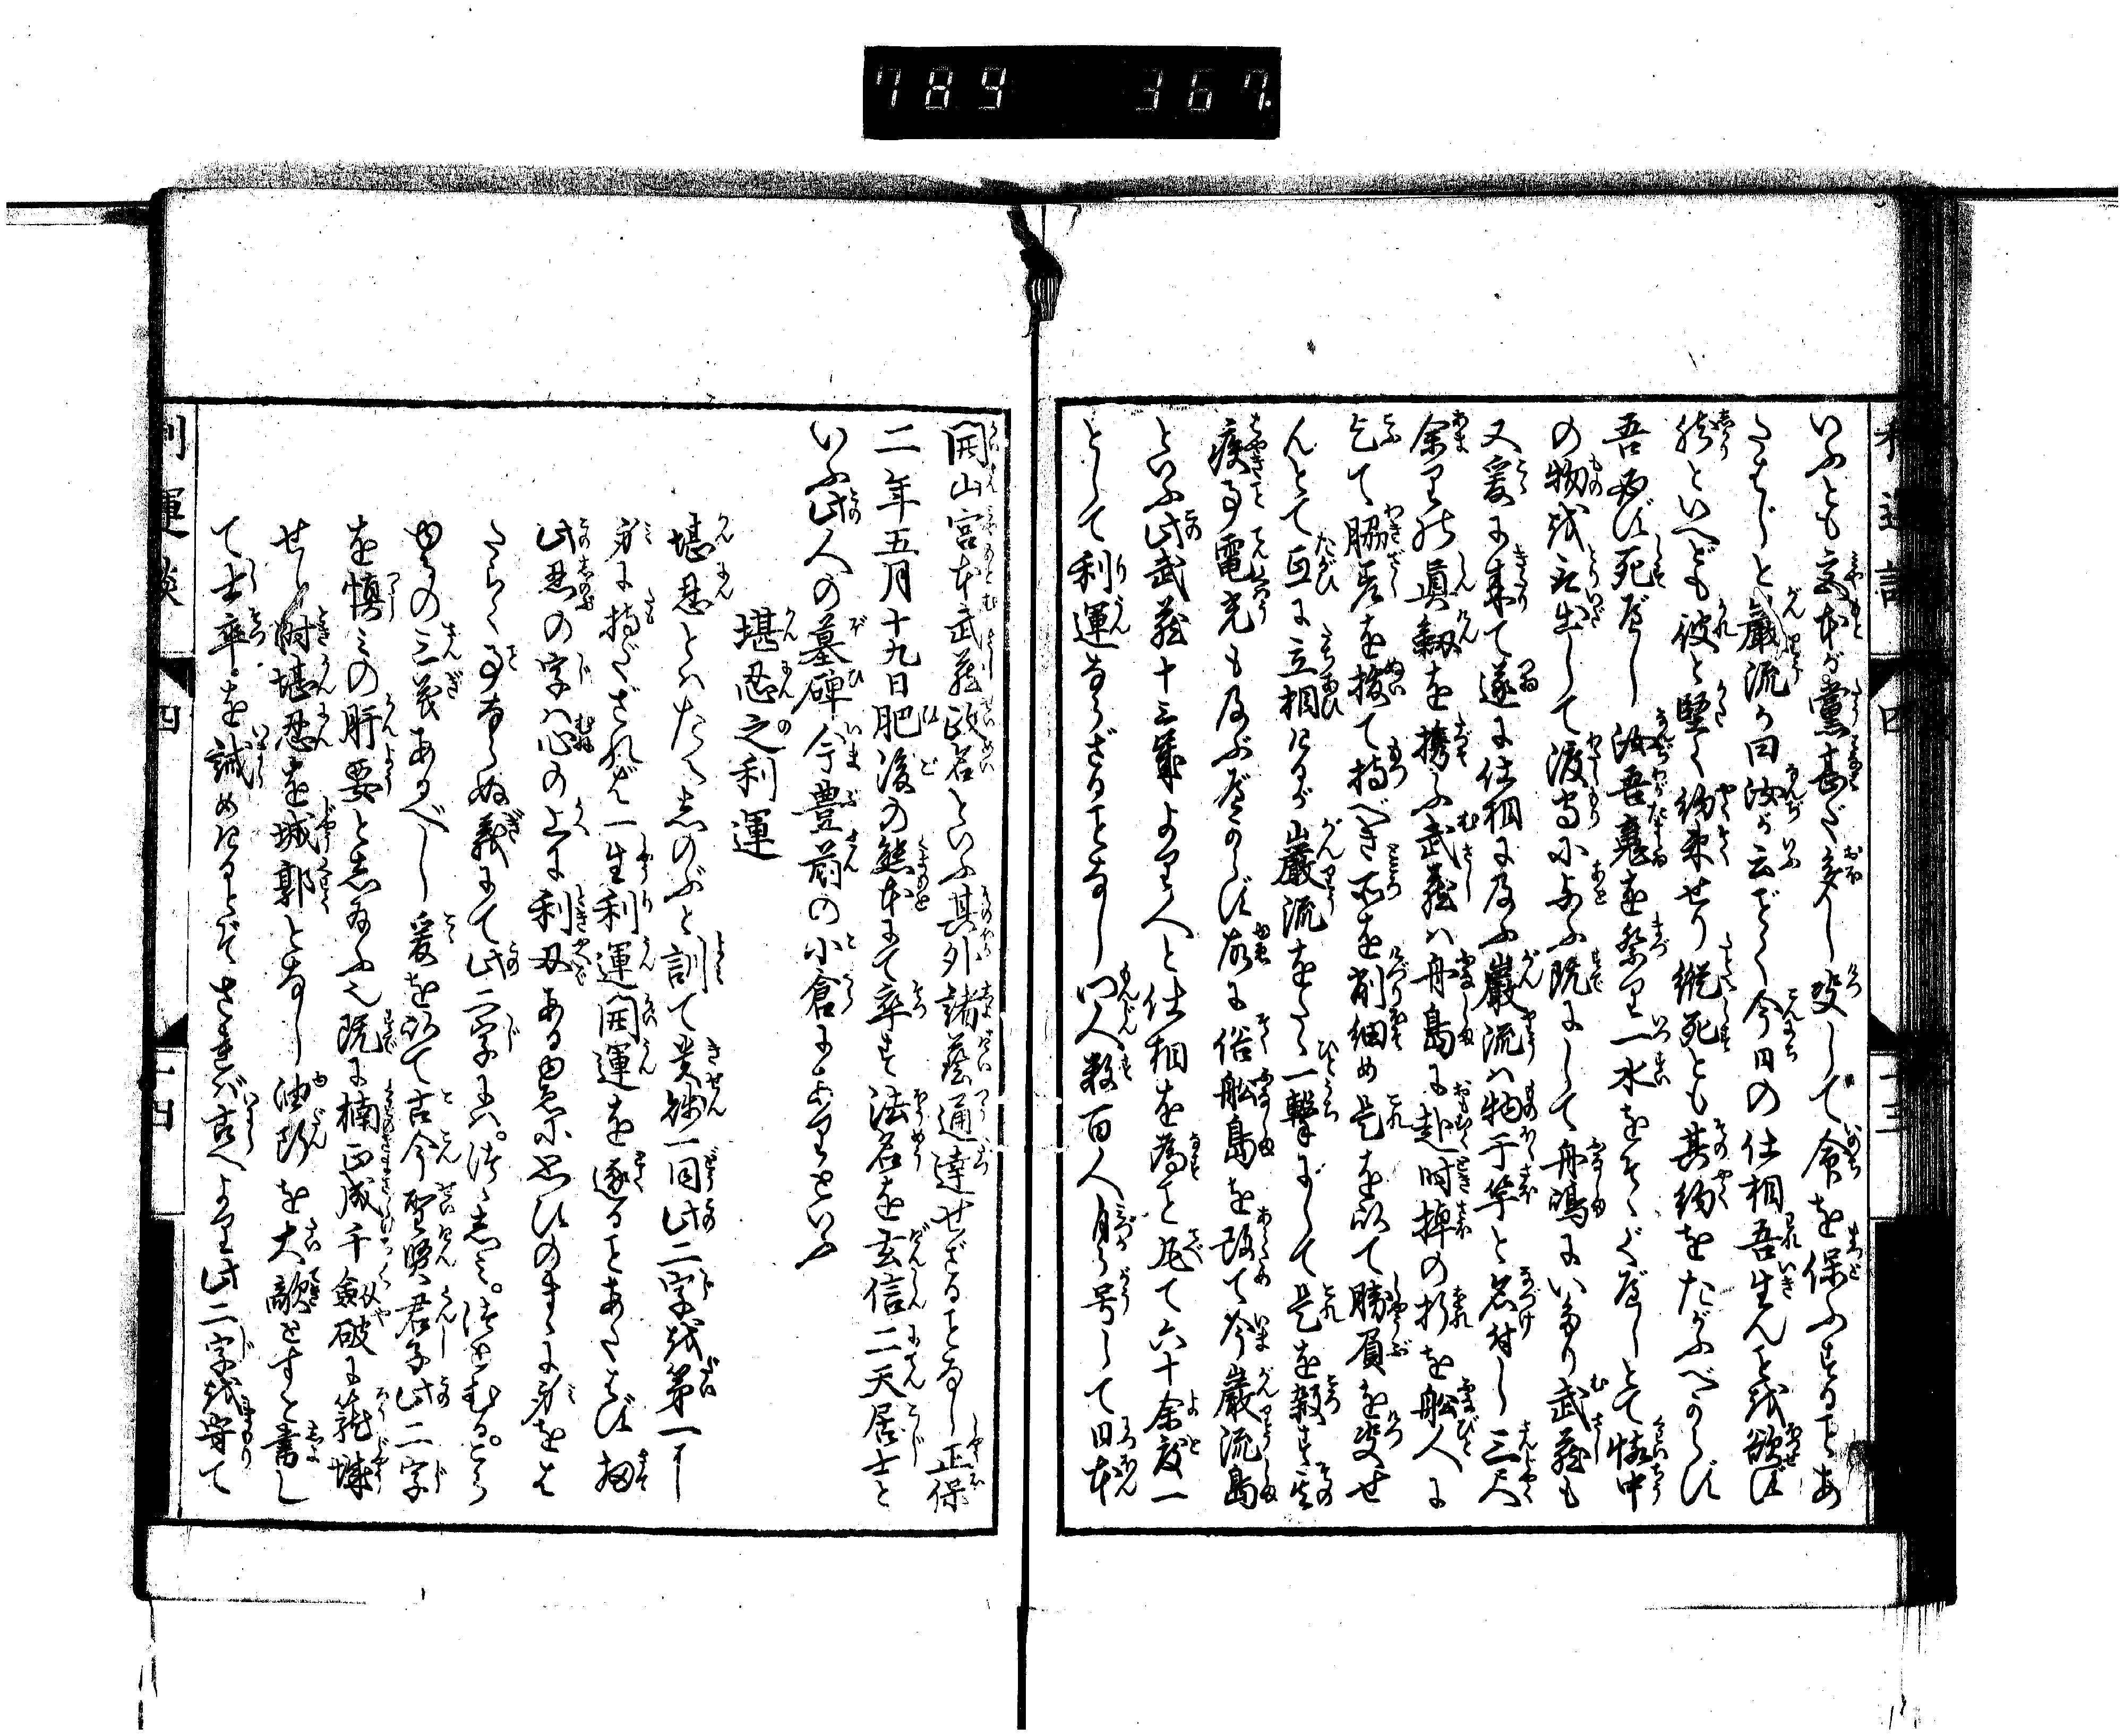 789 367.
いふとも宮本が黨甚だ多し决して命を保ふすることあ
たはじと巌流が曰汝が云ごとく今日の仕相吾生んことを欲せず
然といへども彼と堅く約束せり縦死とも其約をたがふべからず
吾必ず死すべし汝吾䰟を祭り一水をそゝぐべしとて懐中
の物を取出して渡守に与ふ既にして舟嶋にいたり武蔵も
又爰に来て遂に仕相に及ふ巌流は物干竿と名付し三尺
余りの真劔を携ふ武蔵は舟島に赴時棹の折を舩人に
乞て脇差を抜て持べき所を削細め是を以て勝負を决せ
んとて互に立相けるが巌流をたゞ一撃にして是を殺す其
疾事電光も及ぶべからず故に俗舩島を改て今巌流島
といふ此武蔵十三歳より人と仕相を為こと凡て六十余度一
として利運ならざることなし門人数百人自ら号して日本
開山宮本武蔵政名といふ其外諸藝通達せざることなし正保
二年五月十九日肥後の熊本にて卒す法名を玄信二天居士と
いふ此人の墓碑今豊前の小倉にありといふ
堪忍之利運
堪忍とはたへしのぶと訓て貴賎一同此二字を第一に
身に持たざれば一生利運開運を遂ることあたはず扨
此忍の字は心の上に利刃ある由急に思ひのまゝに身をは
たらく事ならぬ義にて此二字には。つゝしみ。つとむる。こら
ゆるの三義あるべし爰を以て古今聖賢君子此二字
を慎みの肝要としたまふ也既に楠正成千劔破に籠城
せし時堪忍を城郭となし油断を大敵とすと書し
て士卒を誡めけるとぞされば古へより此二字を守て
利運談 四 十四